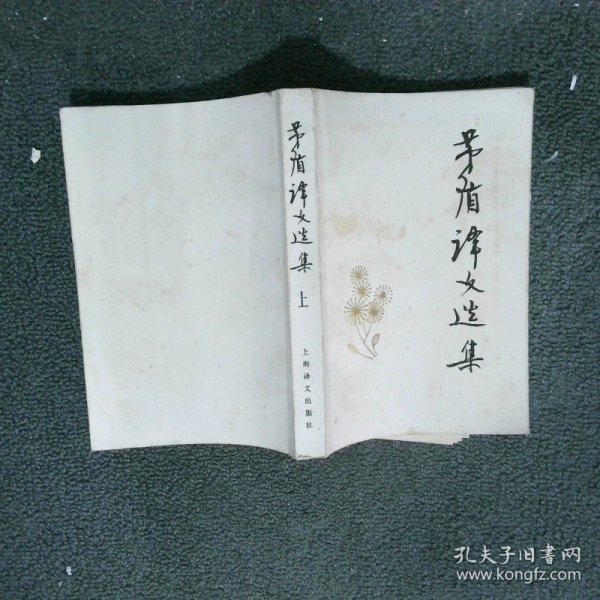 茅盾译文选集
茅盾译文选集 上
上海译文出版社
孔夫子旧书网
www.kongfz.com